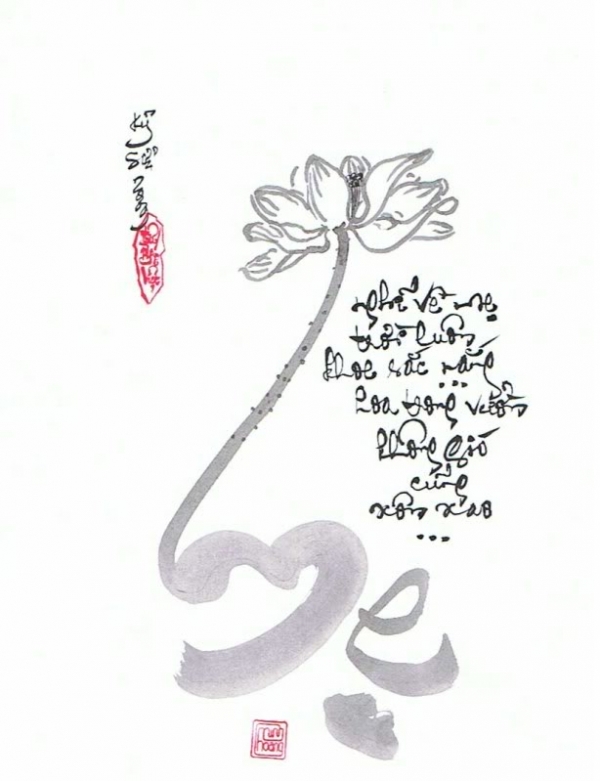 Kỷ
Sửu
nghĩ về mẹ
trời luôn
khoe sắc nắng
...
hoa trong vườn
không gió
cũng
xôn xao
...
Mẹ
minh
hoàng